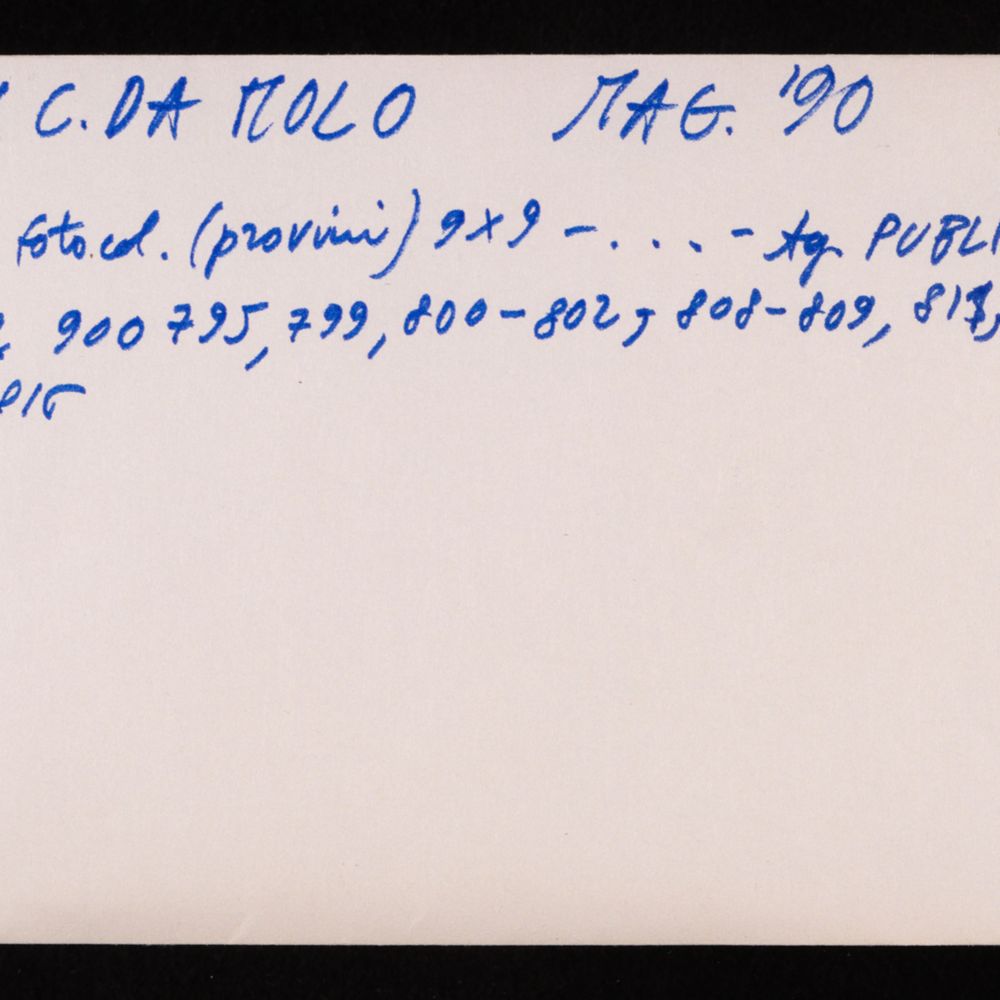 C.DA MOLO MAG. '90
foto col. (provini) 9x9 - . . . . - Ag. PUBLI
900 795, 799, 800-802, 808-809, 813,
815